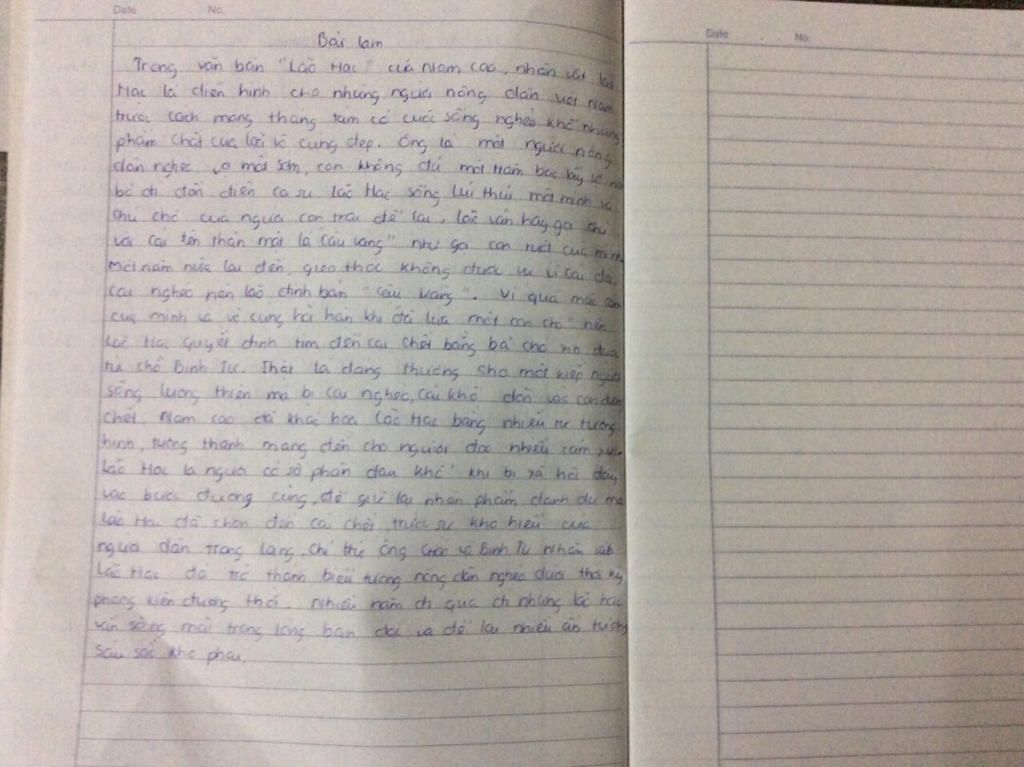 Date No.
Bài làm
Trong văn bản "Lão Hạc" của Nam Cao, nhân vật Lão
Hạc là điển hình cho những người nông dân việt Nam
trước cách mạng tháng tám có cuộc sống nghèo khổ nhưng
phẩm chất của lại vô cùng đẹp. Ông là một người nông
dân nghèo, vợ mất sớm, con không đủ một trăm bạc lấy vợ nên
bỏ đi đồn điền cao su. Lão Hạc sống lủi thủi một mình và
chú chó của người con trai để lại, lão vẫn hay gọi chú
với cái tên thân mật là Cậu vàng" như gọi con ruột của mình
Một năm nữa lại đến, gieo thóc không được vụ vì cái đói,
cái nghèo nên lão định bán "cậu vàng". Vì quá
của mình và vô cùng hối hận khi đã lừa một con chó" nên
Lão Hạc quyết định tìm đến cái chết bằng bả chó xin được
từ chỗ Binh Tư. Thật là đáng thương cho một kiếp người
sống lương thiện mà bị cái nghèo, cái khổ dồn vào con đường
chết. Nam cao đã khắc hoạ Lão Hạc bằng nhiều từ tượng
hình, tượng thanh mang đến cho người đọc nhiều cảm xúc
Lão Hạc là người có số phận đau khổ khi bị xã hội đẩy
vào bước đường cùng, để giữ lại nhân phẩm danh dự mà
Lão Hạc đã chọn đến cái chết, trước sự khó hiểu của
người dân trong làng, chỉ trừ ông Giáo và Binh Tư. Nhân vật
Lão Hạc đã trở thành biểu tượng nông dân nghèo dưới thời kỳ
phong kiến đương thời. Nhiều năm đi qua đi nhưng lão hạc
vẫn sống mãi trong lòng bạn đọc và để lại nhiều ấn tượng
sâu sắc khó phai.
Date No.